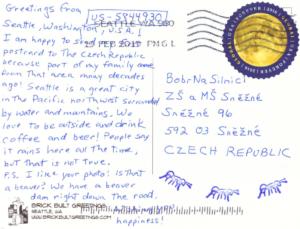 Greetings from
Seattle, Washington, U.S.A.!
US-5844930
I am happy to send this
postcard to The Czech Republic
because part of my family came
from that area, many decades
ago! Seattle is a great city
in the Pacific northwest surrounded
by water and mountains. We
love to be outside and drink
coffee and beer! People say
it rains here all the time,
but that is not true.
P.S. I like your photo! Is that
a beaver? We have a beaver
dam right down the road.
happiness!
SEATTLE WA 980
FOREVER
Bobr Na Silnici
ZŠ a MŠ Sněžné
Sněžné 96
592 03 Sněžné
CZECH REPUBLIC
BRICK BUILT GREETINGS
SEATTLE, WA
WWW.BRICKBUILTGREETINGS.COM